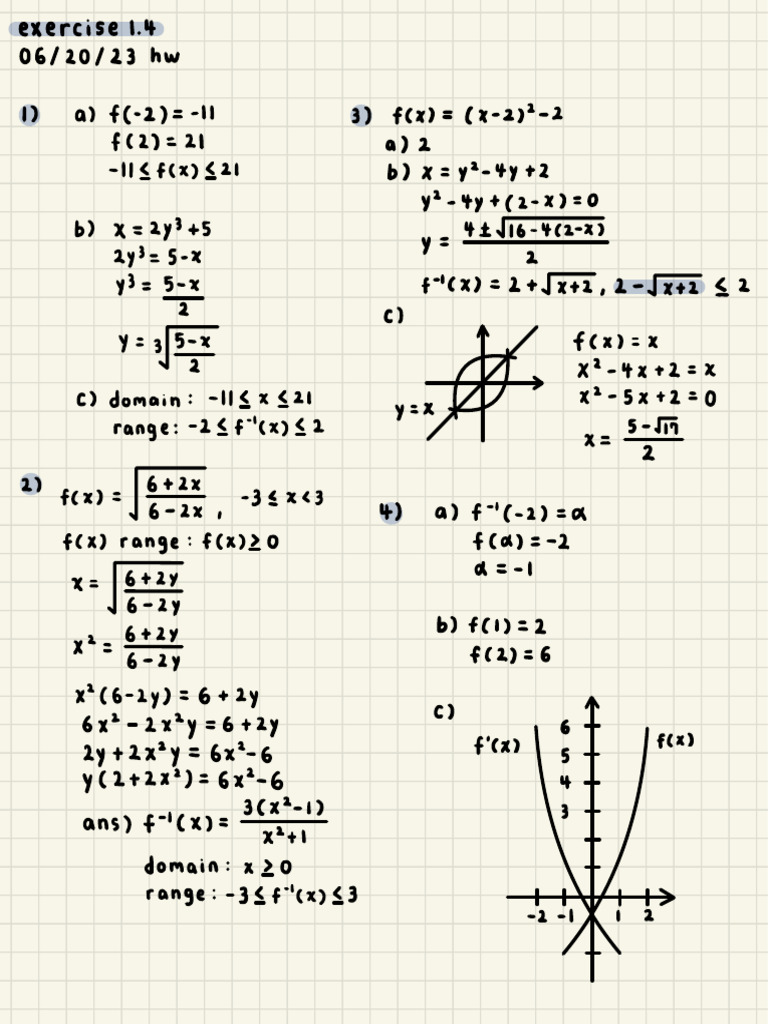 exercise 1.4
06/20/23 hw
1) a) f(-2) = -11
f(2) = 21
-11 ≤ f(x) ≤ 21
b) x = 2y³ + 5
2y³ = 5-x
y³ = (5-x)/2
y = ∛((5-x)/2)
c) domain: -11 ≤ x ≤ 21
range: -2 ≤ f⁻¹(x) ≤ 2
2) f(x) = √((6+2x)/(6-2x)), -3 ≤ x < 3
f(x) range: f(x) ≥ 0
x = √((6+2y)/(6-2y))
x² = (6+2y)/(6-2y)
x²(6-2y) = 6 + 2y
6x² - 2x²y = 6 + 2y
2y + 2x²y = 6x² - 6
y(2+2x²) = 6x² - 6
ans) f⁻¹(x) = 3(x²-1)/(x²+1)
domain: x ≥ 0
range: -3 ≤ f⁻¹(x) ≤ 3
3) f(x) = (x-2)² - 2
a) 2
b) x = y² - 4y + 2
y² - 4y + (2-x) = 0
y = (4 ± √(16-4(2-x)))/2
f⁻¹(x) = 2 + √(x+2), 2 - √(x+2) ≤ 2
c)
y = x
f(x) = x
x² - 4x + 2 = x
x² - 5x + 2 = 0
x = (5-√17)/2
4) a) f⁻¹(-2) = α
f(α) = -2
α = -1
b) f(1) = 2
f(2) = 6
c)
f'(x) f(x)
6
5
4
3
-2 -1 1 2